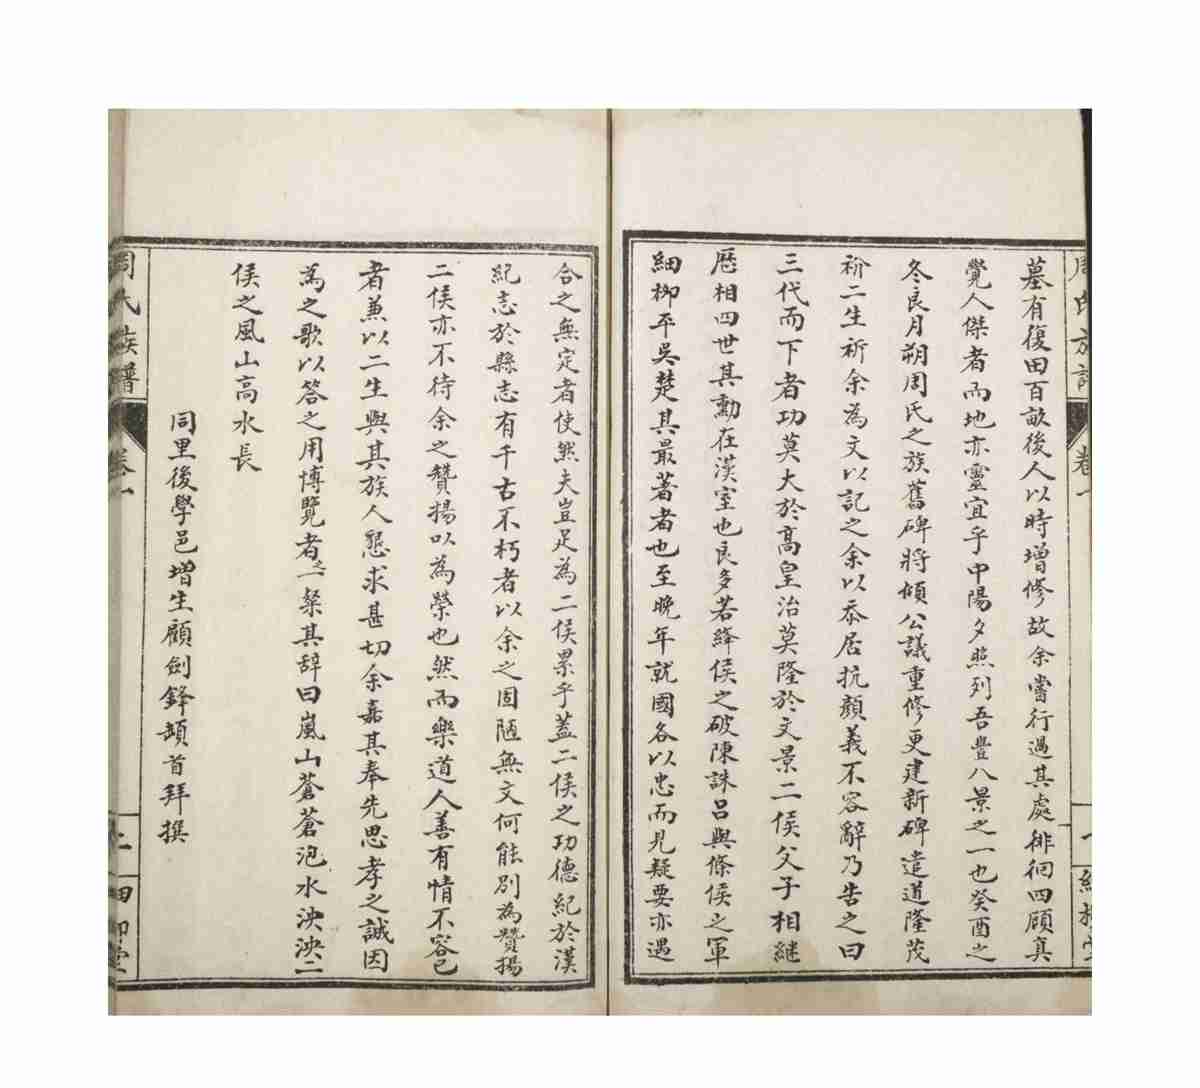 周氏族譜 卷一 細柳堂
墓有復田百畝後人以時增修故余嘗行過其處徘徊四顧真
覺人傑者而地亦靈宜乎中陽夕照列吾豐八景之一也癸酉之
冬良月朔周氏之族舊碑將傾公議重修更建新碑遣道隆茂
衸二生祈余為文以記之余以忝居抗顏義不容辭乃告之曰
三代而下者功莫大於高皇治莫隆於文景二侯父子相繼
歷相四世其勳在漢室也良多若絳侯之破陳誅呂與條侯之軍
細柳平吳楚其最著者也至晚年就國各以忠而見疑要亦遇
合之無定者使然夫豈足為二侯累乎蓋二侯之功德紀於漢
紀志於縣志有千古不朽者以余之固陋無文何能別為贊揚
二侯亦不待余之贊揚以為榮也然而樂道人善有情不容已
者兼以二生與其族人懇求甚切余嘉其奉先思孝之誠因
為之歌以答之用博覽者之一粲其辞曰嵐山蒼蒼泡水泱泱二
侯之風山高水長
同里後學邑增生顧劍鋒頓首拜撰
周氏族譜 卷一 二 細柳堂